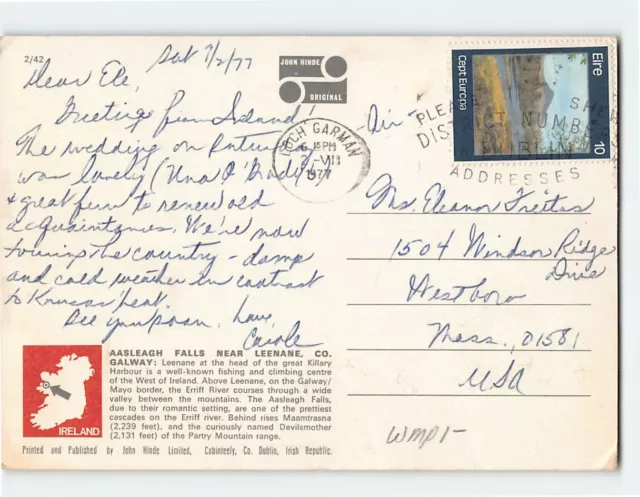 2/42
Sat 7/2/77
JOHN HINDE
ORIGINAL
Dear Ele,
Greeting from Ireland!
The wedding on
was lovely (Una O'Brady's)
& great fun to renew old
acquaintances. We're now
touring the country - damp
and cold weather in contrast
to Kansas heat.
See you soon. Love,
Carole
AASLEAGH FALLS NEAR LEENANE, CO.
GALWAY: Leenane at the head of the great Killary
Harbour is a well-known fishing and climbing centre
of the West of Ireland. Above Leenane, on the Galway/
Mayo border, the Erriff River courses through a wide
valley between the mountains. The Aasleagh Falls,
due to their romantic setting, are one of the prettiest
cascades on the Erriff river. Behind rises Maamtrasna
(2,239 feet) and the curiously named Devilsmother
(2,131 feet) of the Partry Mountain range.
IRELAND
Printed and Published by John Hinde Limited, Cabinteely, Co. Dublin, Irish Republic.
Air
LOCH GARMAN
6 PM
2-VII
1977
PLEASE SHEW
DISTRICT NUMBERS
ADDRESSES
Cept Europa
Eire
10
Ms. Eleanor Freitas
1504 Windsor Ridge
Drive
Westboro
Mass. 01581
USA
WMP1-